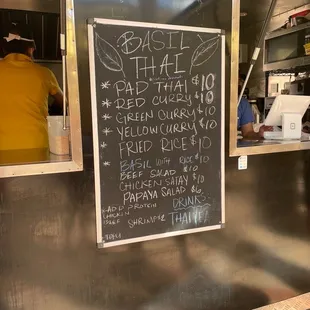 BASIL
THAI
* PAD THAI $10
* RED CURRY $10
* GREEN CURRY $10
* YELLOW CURRY $10
* FRIED RICE $10
BASIL WITH RICE $10
BEEF SALAD $10
CHICKEN SATAY $10
PAPAYA SALAD $6
ADD PROTEIN
CHICKEN
BEEF SHRIMP
DRINKS
THAI